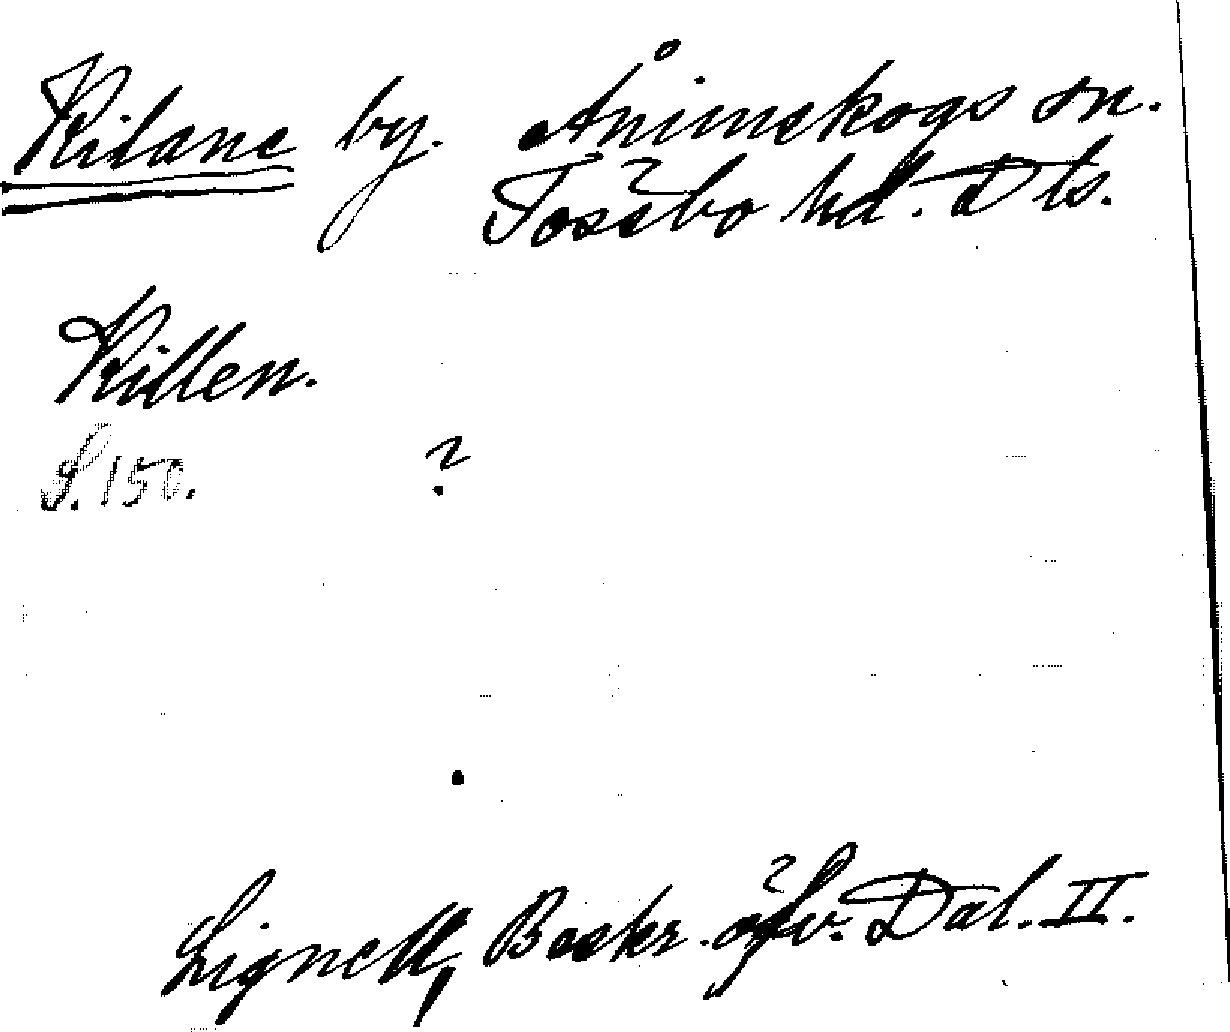 Kilane by. Ånimskogs sn.
Tössbo hd. Dls.
Killen.
S. 150. ?
Lignell, Beskr. öfv. Dal. II.